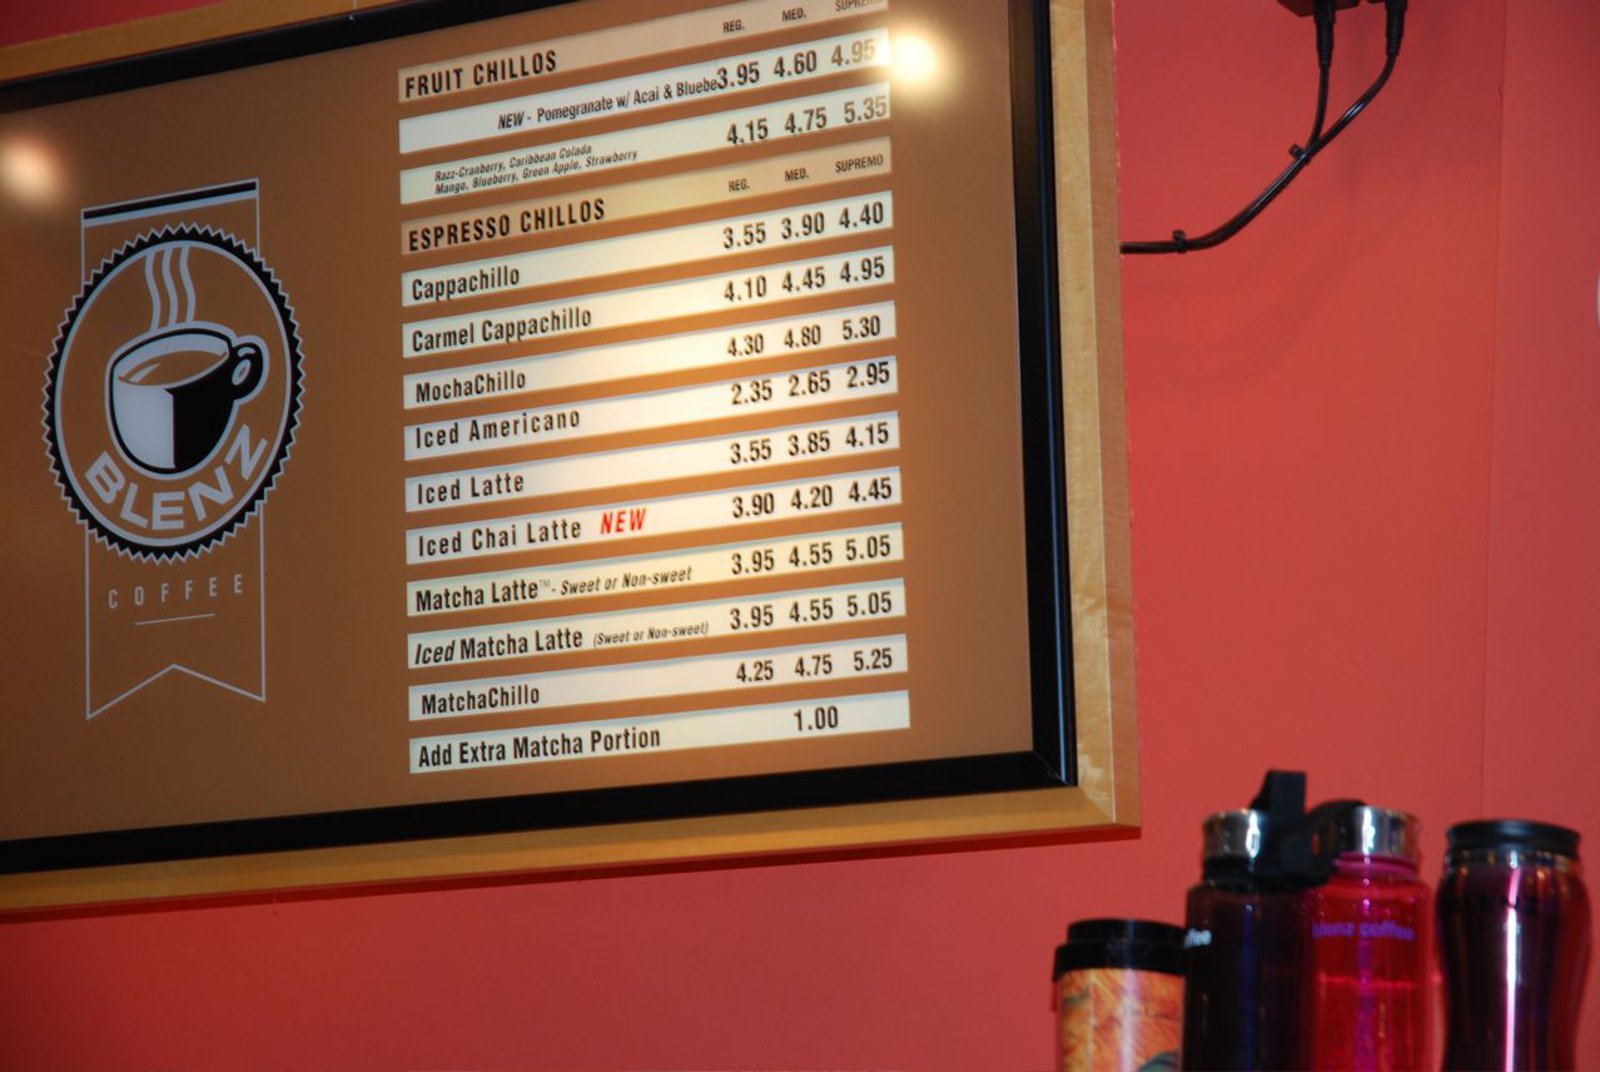 REG. MED. SUPREMO
FRUIT CHILLOS
NEW - Pomegranate w/ Acai & Bluebe 3.95 4.60 4.95
4.15 4.75 5.35
Razz-Cranberry, Caribbean Colada
Mango, Blueberry, Green Apple, Strawberry
REG. MED. SUPREMO
ESPRESSO CHILLOS
Cappachillo 3.55 3.90 4.40
Carmel Cappachillo 4.10 4.45 4.95
MochaChillo 4.30 4.80 5.30
Iced Americano 2.35 2.65 2.95
Iced Latte 3.55 3.85 4.15
Iced Chai Latte NEW 3.90 4.20 4.45
Matcha Latte™ - Sweet or Non-sweet 3.95 4.55 5.05
Iced Matcha Latte (Sweet or Non-sweet) 3.95 4.55 5.05
MatchaChillo 4.25 4.75 5.25
Add Extra Matcha Portion 1.00
BLENZ
COFFEE
ffee
blenz coffee